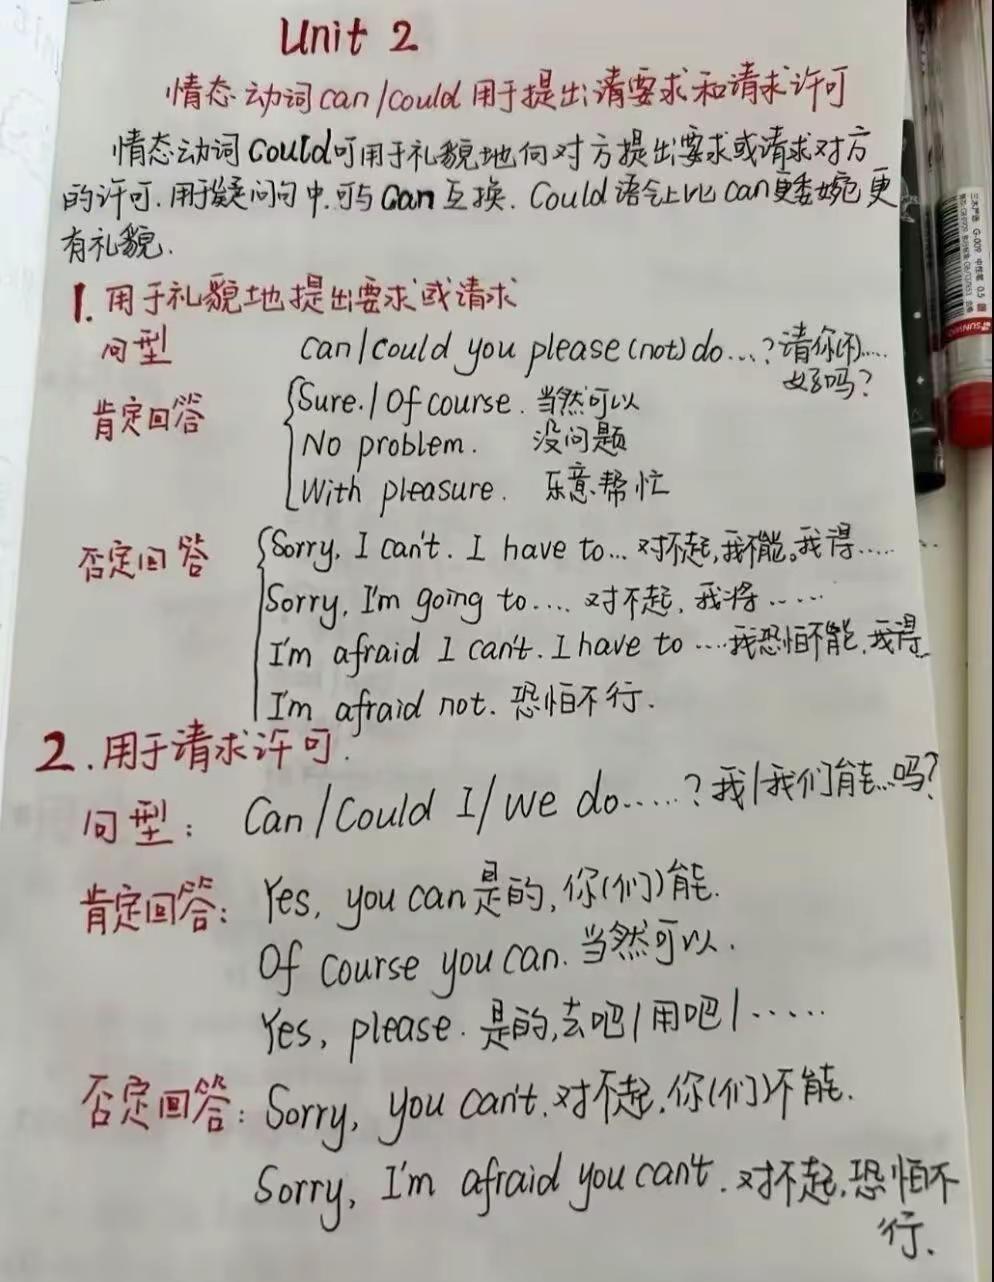 Unit 2
情态动词can/could用于提出请要求和请求许可
情态动词Could可用于礼貌地向对方提出要求或请求对方
的许可.用于疑问句中.可与Can互换. Could语气上比can更委婉更
有礼貌.
1.用于礼貌地提出要求或请求
句型 can/could you please(not)do...?请你(不)....
好吗?
肯定回答 Sure./Of course. 当然可以
No problem. 没问题
With pleasure. 乐意帮忙
否定回答 Sorry, I can't. I have to... 对不起,我不能。我得.....
Sorry, I'm going to.... 对不起, 我将.....
I'm afraid I can't. I have to ....我恐怕不能,我得...
I'm afraid not. 恐怕不行.
2.用于请求许可.
句型: Can/Could I/we do.....?我/我们能...吗?
肯定回答: Yes, you can是的,你(们)能.
Of course you can.当然可以.
Yes, please. 是的,去吧/用吧/.....
否定回答: Sorry, you can't.对不起,你(们)不能.
Sorry, I'm afraid you can't. 对不起,恐怕不
行.
G-009 中性笔 0.5
SUNWOOD